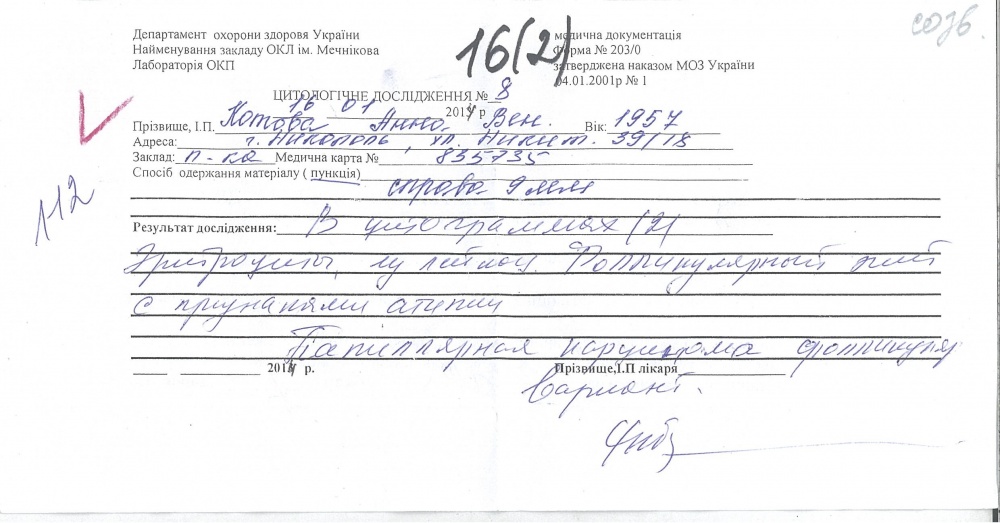 созб.
Департамент охорони здоровя України
Найменування закладу ОКЛ ім. Мечнікова
Лабораторія ОКП
16(2)
медична документація
Форма № 203/0
затверджена наказом МОЗ України
04.01.2001р № 1
ЦИТОЛОГІЧНЕ ДОСЛІДЖЕННЯ № 8
16 01 2014 р
Прізвище, І.П. Котова Анна Вен. Вік: 1957
Адреса: г. Никополь, ул. Никит. 39/18
Заклад: п-ка Медична карта № 835735
Спосіб одержання матеріалу ( пункція)
справа 9 мм
112
Результат дослідження: В цитограммах (2)
Эритроциты, Фолликулярный эпит
с признаками атипии
Папиллярная карцинома фолликуляр
2014 р. Прізвище,І.П лікаря
вариант.